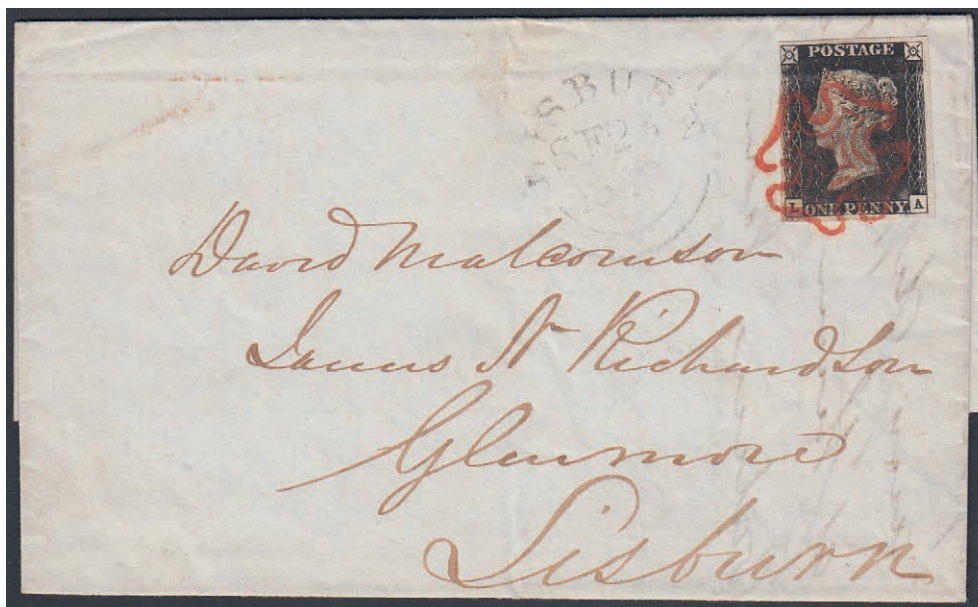 POSTAGE
L ONE PENNY A
SE 26
David Malcomson
James N Richardson
Glenmore
Lisburn